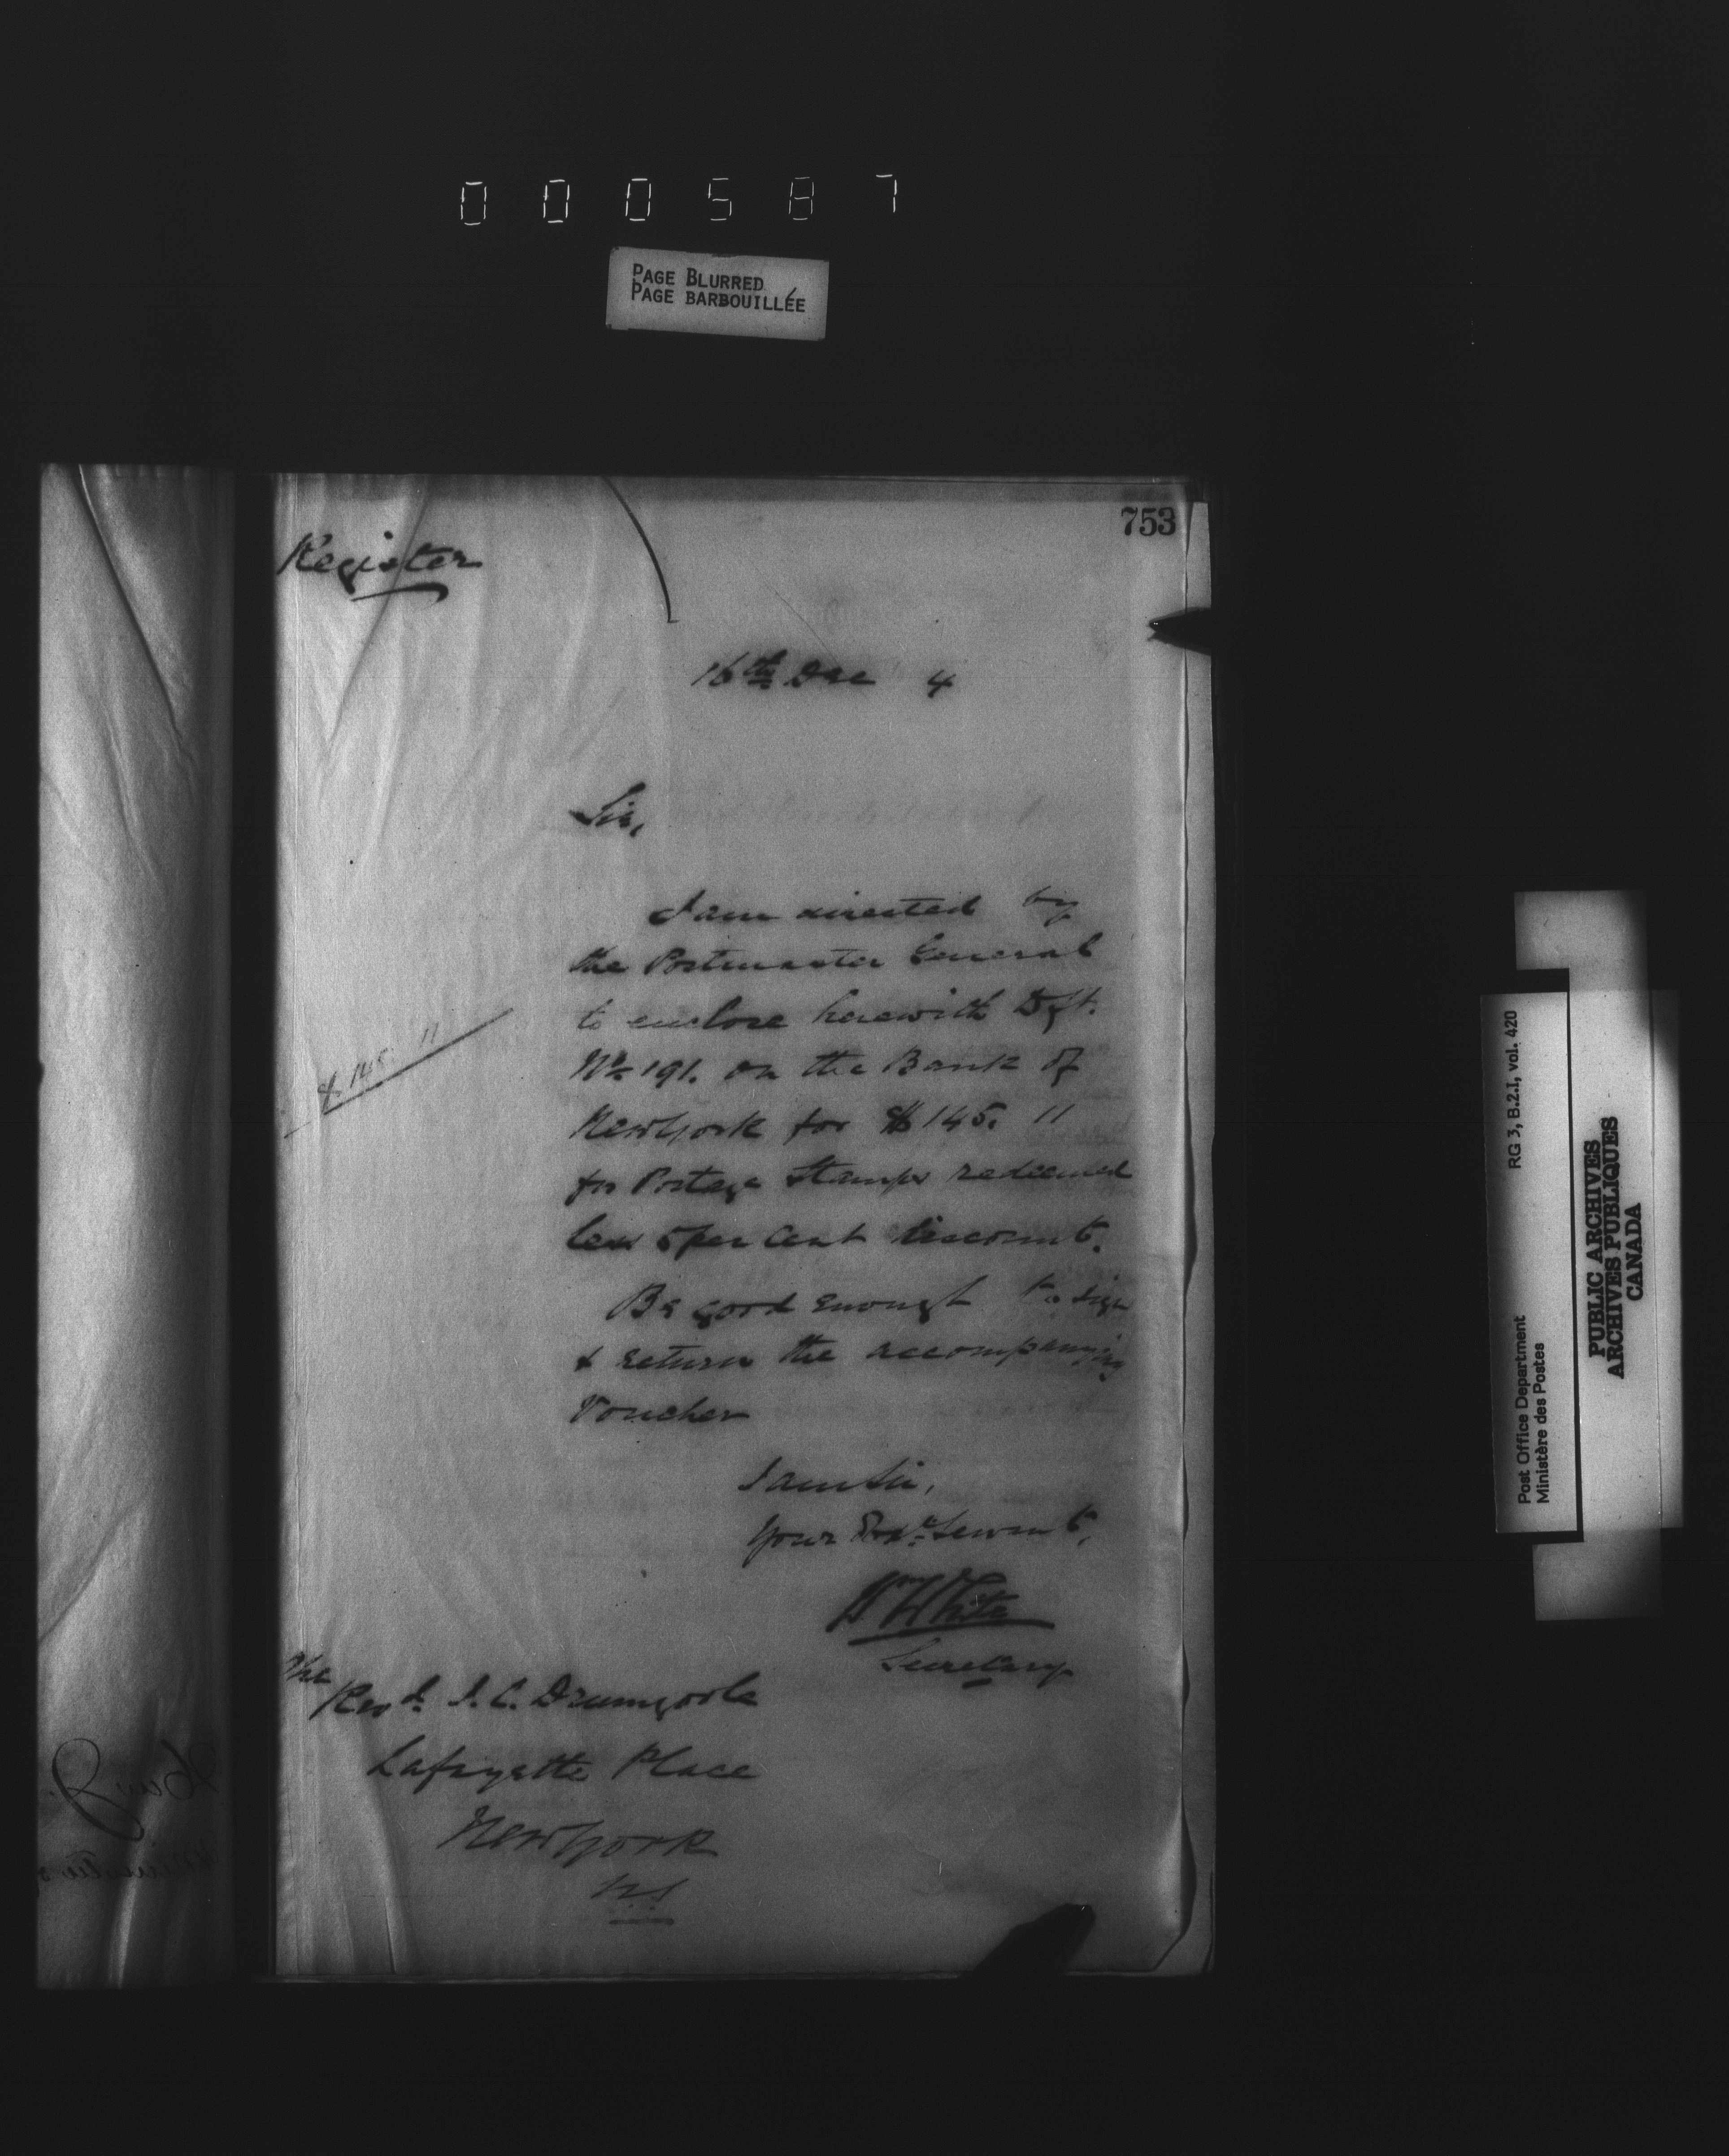 000587
PAGE BLURRED
PAGE BARBOUILLÉE
753
Register
16th Dec 4
Sir,
I am directed by
the Postmaster General
to enclose herewith Dft.
No 191. on the Bank of
New York for $145. 11
$ 145. 11
for Postage Stamps redeemed
less 5 per cent discount.
Be good enough to sign
& return the accompanying
Voucher
I am Sir,
Your Obt. Servant,
Wm White
Secretary
The
Revd. J. C. Drumgoole
Lafayette Place
New York
RG 3, B.2.I, vol. 420
Post Office Department
Ministère des Postes
PUBLIC ARCHIVES
ARCHIVES PUBLIQUES
CANADA